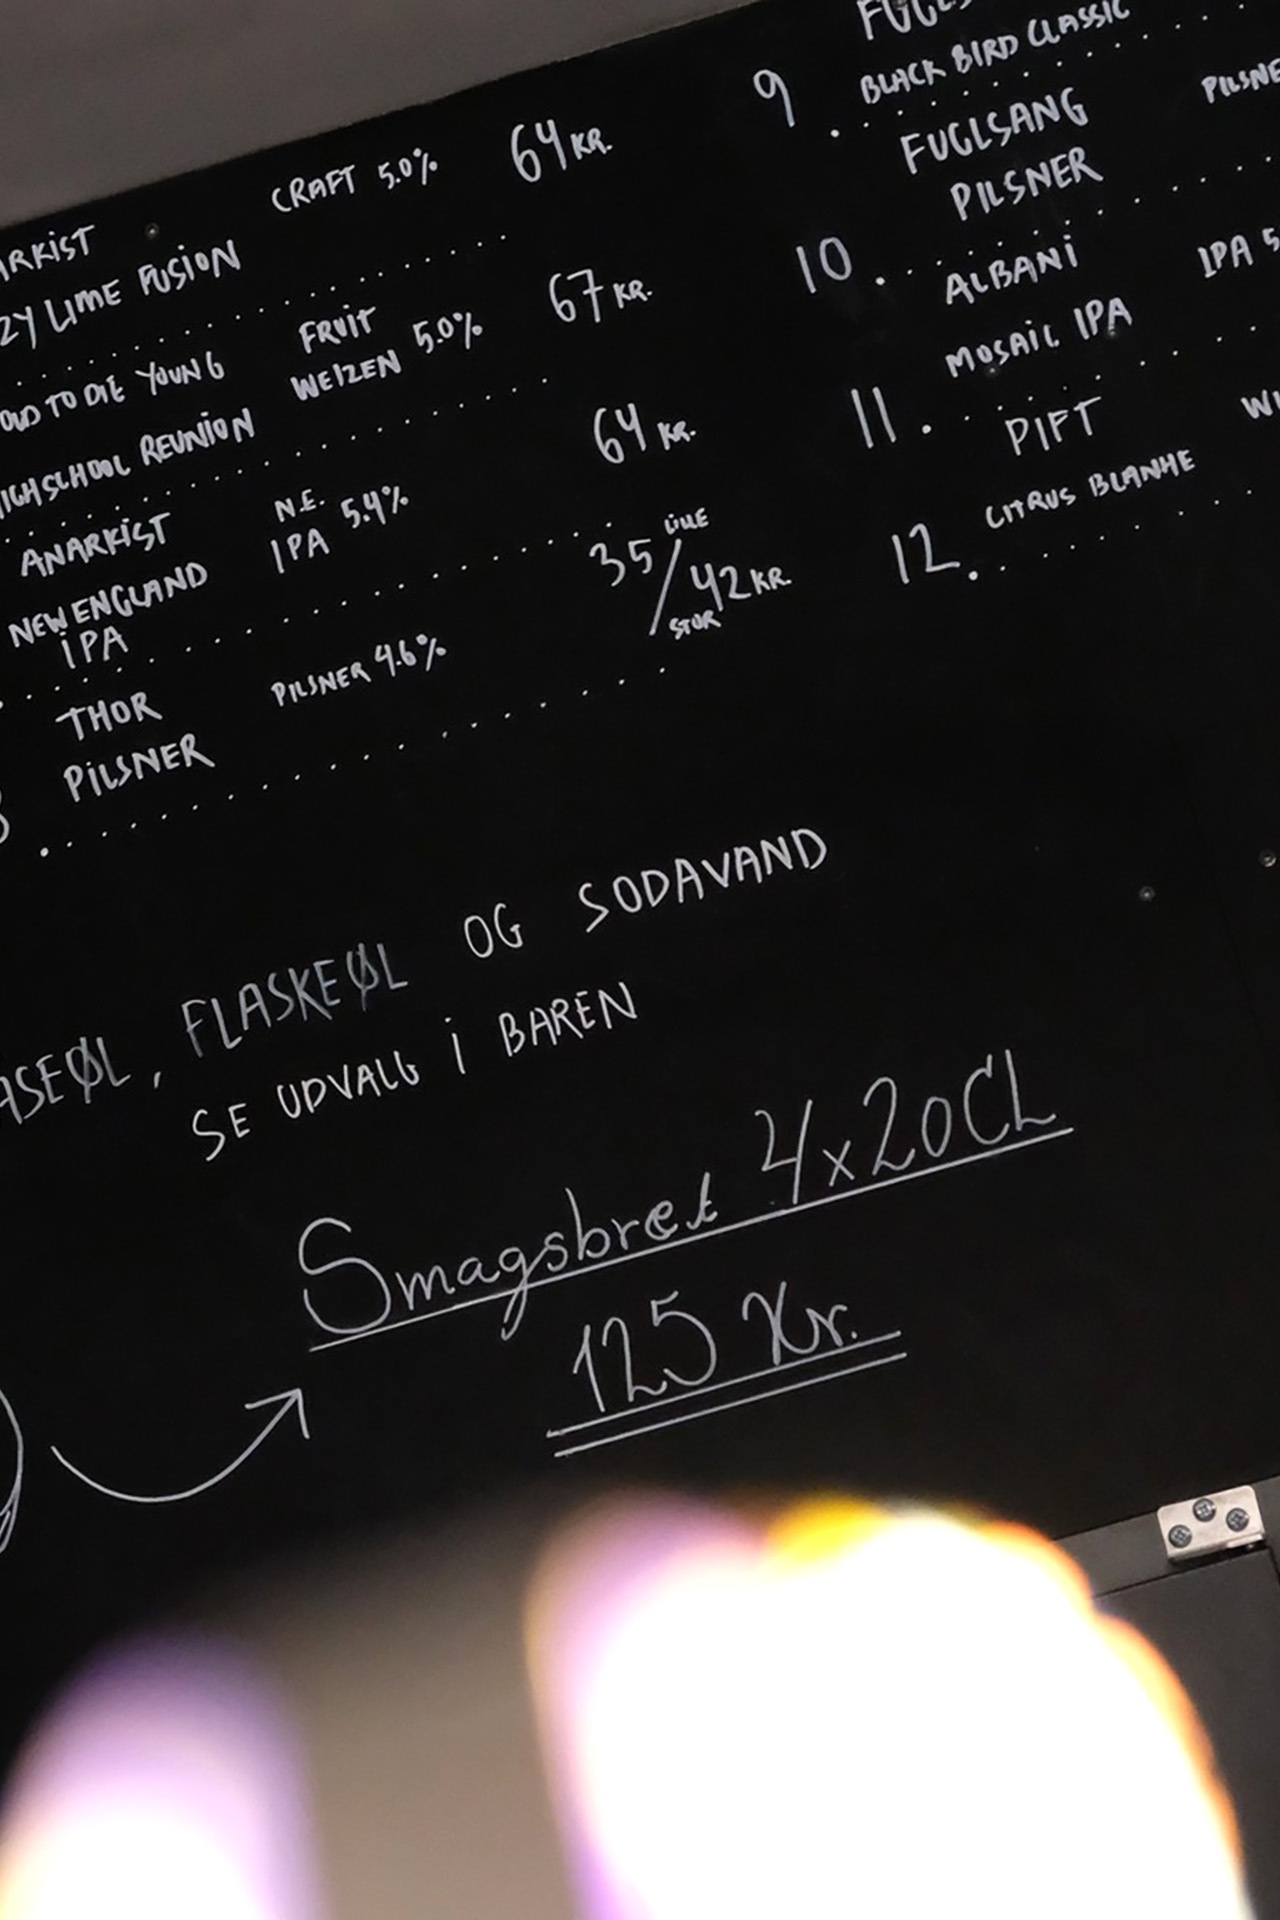 ARKIST CRAFT 5.0% 64 KR.
ZY LIME FUSION
OUD TO DIE YOUNG FRUIT 67 KR.
IGHSCHOOL REUNION WEIZEN 5.0%
ANARKIST N.E. 64 KR.
NEW ENGLAND IPA 5.4%
IPA
THOR PILSNER 4.6% 35/42 KR.
LILLE
STOR
PILSNER
9 BLACK BIRD CLASSIC
FUGLSANG PILSNE
PILSNER
10. ALBANI IPA 5
MOSAIC IPA
11. PIFT WI
CITRUS BLANHE
12.
ASEØL, FLASKEØL OG SODAVAND
SE UDVALG I BAREN
Smagsbræt 4x20CL
125 Kr.